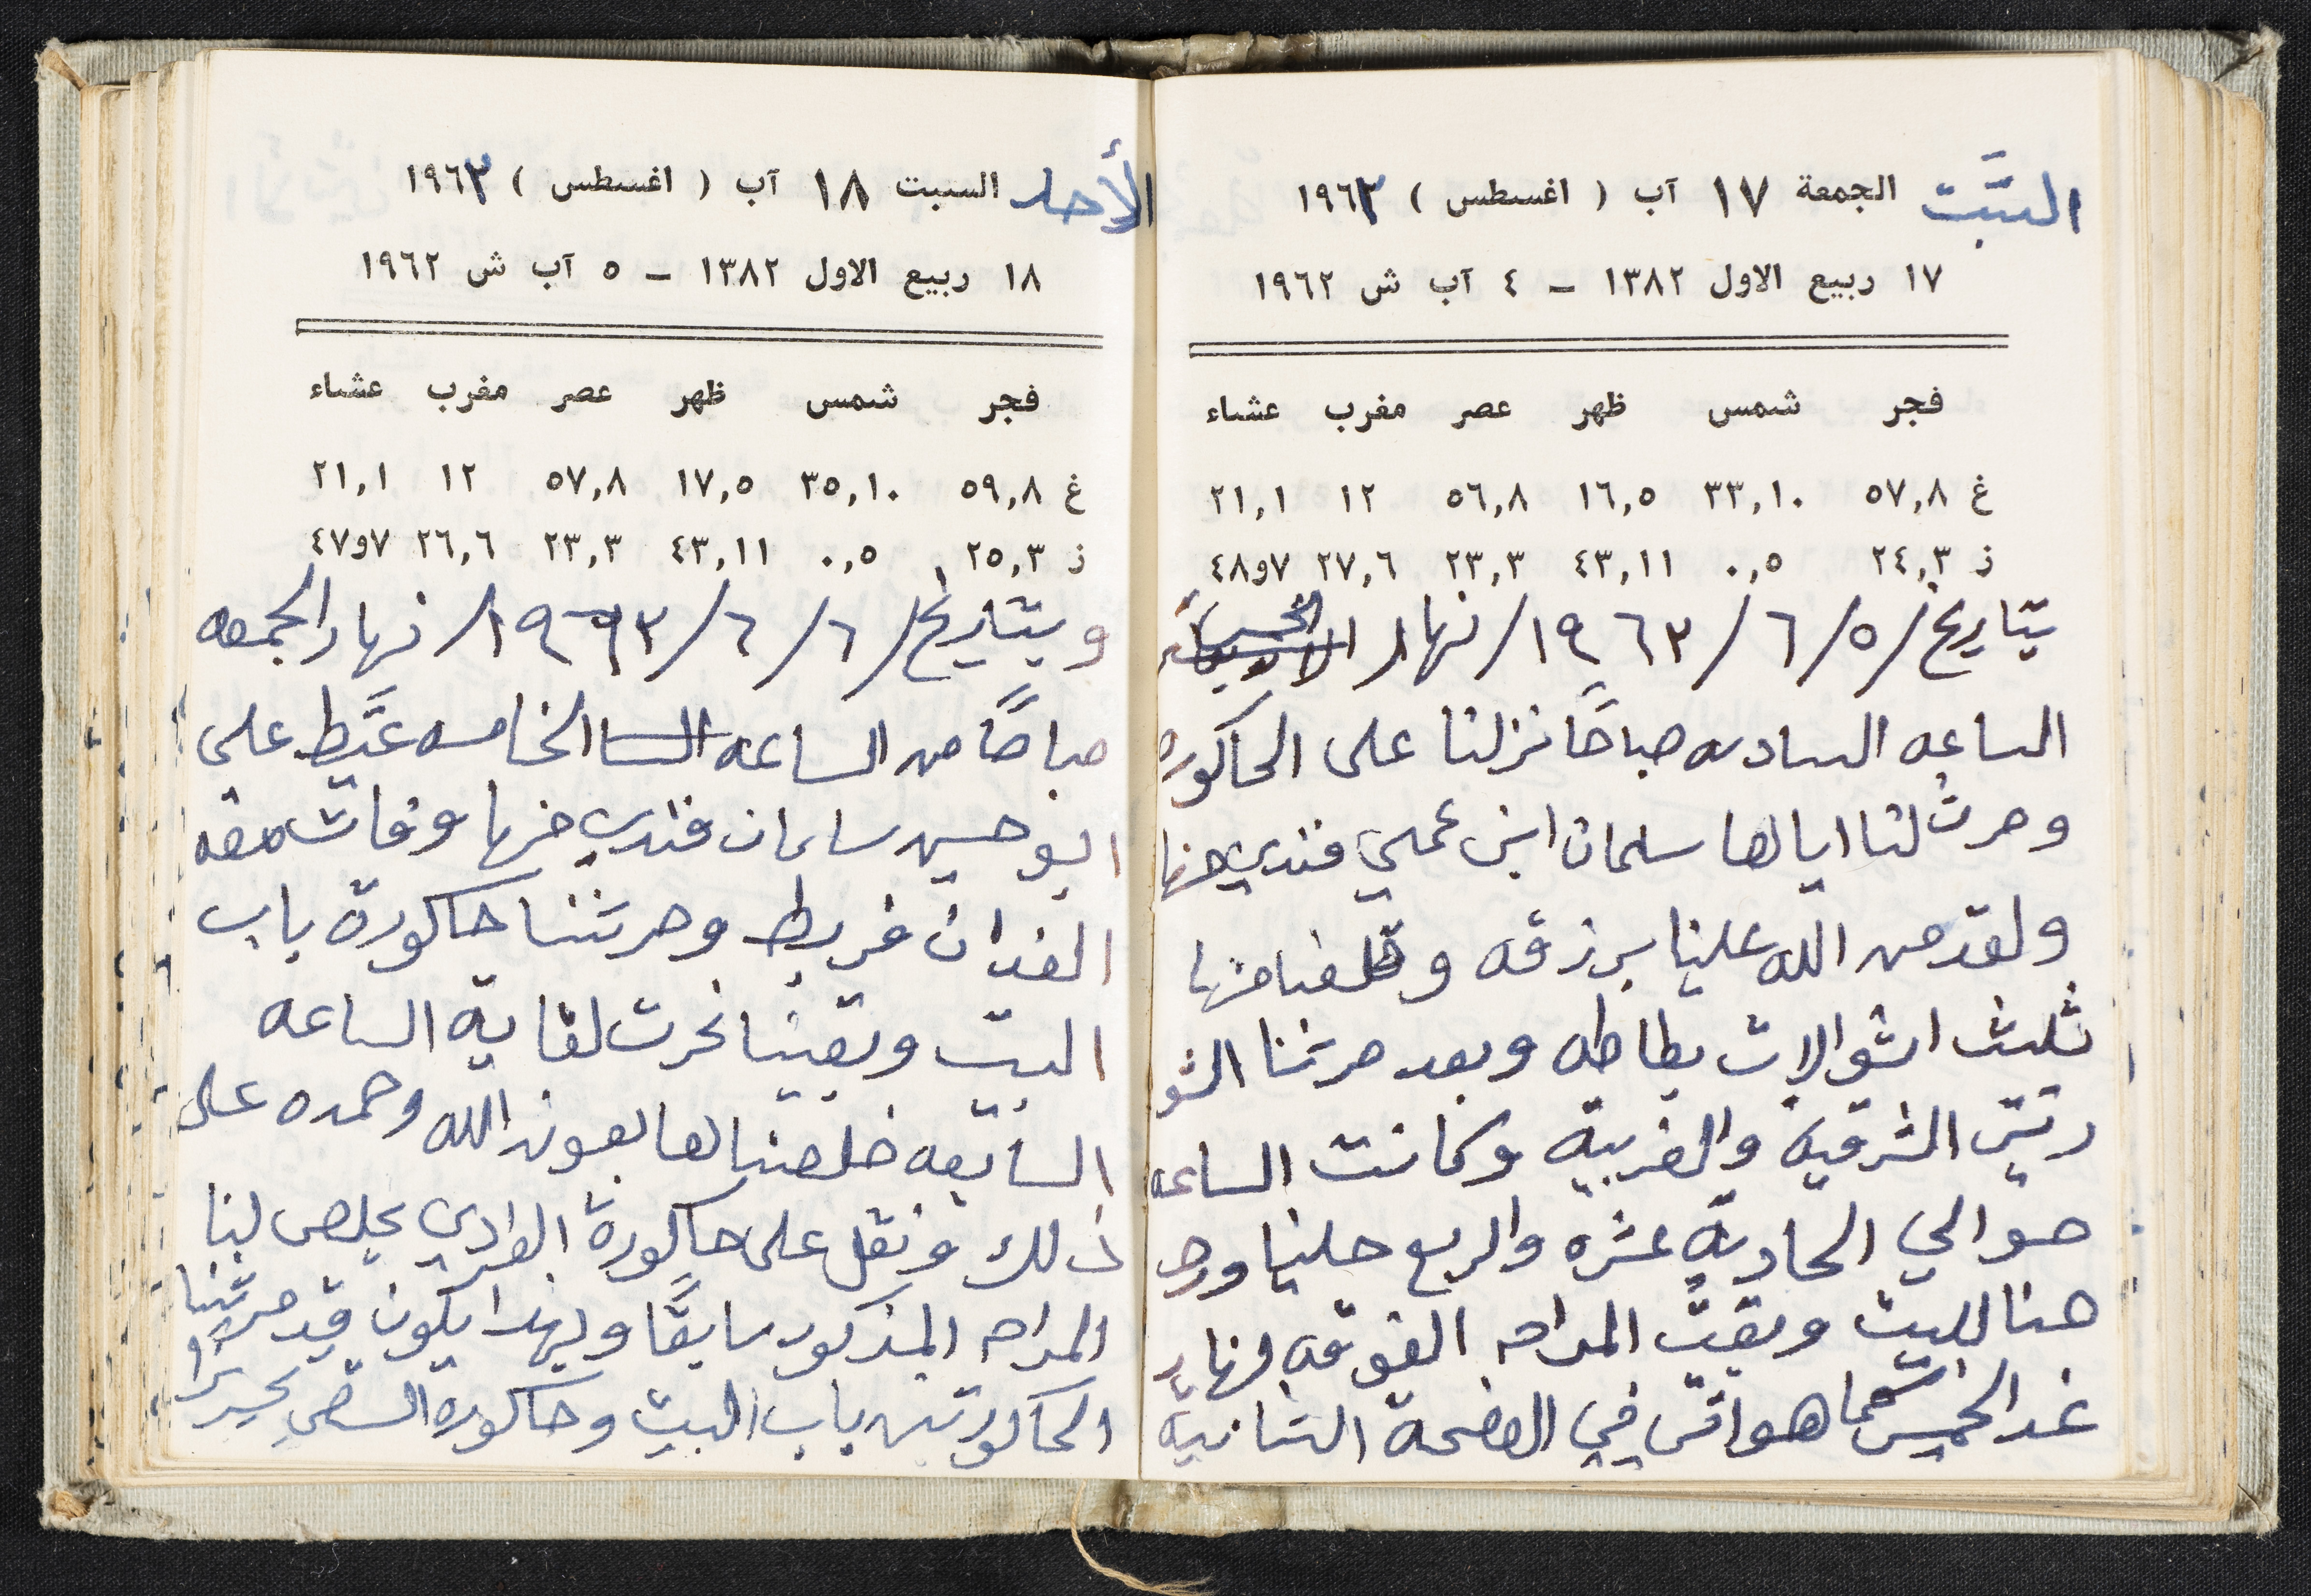 السَّبت الجمعة ١٧ آب ( اغسطس ) ١٩٦٣
١٧ ربيع الاول ١٣٨٢ – ٤ آب ش ١٩٦٢
فجر شمس ظهر عصر مغرب عشاء
غ ٥٧,٨ ٣٣,١٠ ١٦,٥ ٥٦,٨ ١٢ ٢١,١
ز ٢٤,٣ ٠,٥ ٤٣,١١ ٢٣,٣ ٢٧,٦ ٧و٤٨
بتاريخ /٥/٦/١٩٦٣/ نهار الاربعاء الخميس
الساعه السادسه صباحًا نزلنا على الحاكوره
وحرث لنا ايالها سلمان ابن عمي فندي
ولقد من الله علينا برزقه و منها
ثلث اشوالات بطاطه وبعد حرثنا الشو
رتين الشرقية والغربية وكانت الساعه
حوالي الحادية عشره والربع حلينا ورو
حنا للبيت وبقيت المراحه الفوقه لنهار
غد الخميس كما هو اتى في الصفحة الثانية
الأحد السبت ١٨ آب ( اغسطس ) ١٩٦٣
١٨ ربيع الاول ١٣٨٢ – ٥ آب ش ١٩٦٢
فجر شمس ظهر عصر مغرب عشاء
غ ٥٩,٨ ٣٥,١٠ ١٧,٥ ٥٧,٨ ١٢ ٢١,١
ز ٢٥,٣ ٠,٥ ٤٣,١١ ٢٣,٣ ٢٦,٦ ٧و٤٧
وبتاريخ /٦/٦/١٩٦٣/ نهار الجمعه
صباحًا من الساعه السا الخامسه عيَّط على
ابو حسين سلمان فندي وفات معه
الفدان فربط وحرثنا حاكورة باب
البيت وبقينا نحرث لغاية الساعه
السابعه خلصنالها بعون الله وحمده على
ذلك ونقل على حاكورة الوادي يخلص لنا
المراحه المذكوره سابقًا وبهذا يكون قد حرثنا
الحاكورتين باب البيت وحاكورة